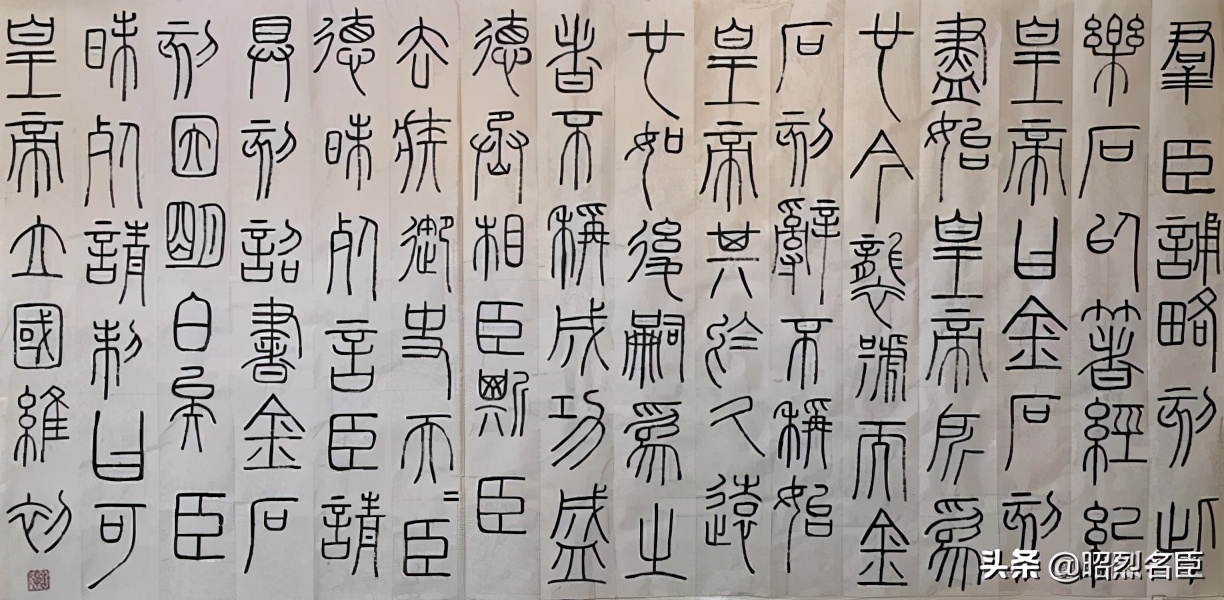 羣臣誦略刻此
樂石以著經紀
皇帝曰金石刻
盡始皇帝所爲
也今襲號而金
石刻辭不稱始
皇帝其於久遠
也如後嗣爲之
者不稱成功盛
德丞相臣斯臣
去疾御史夫=臣
德昧死言臣請
具刻詔書金石
刻因明白矣臣
昧死請制曰可
皇帝立國維初
头条 @昭烈名臣